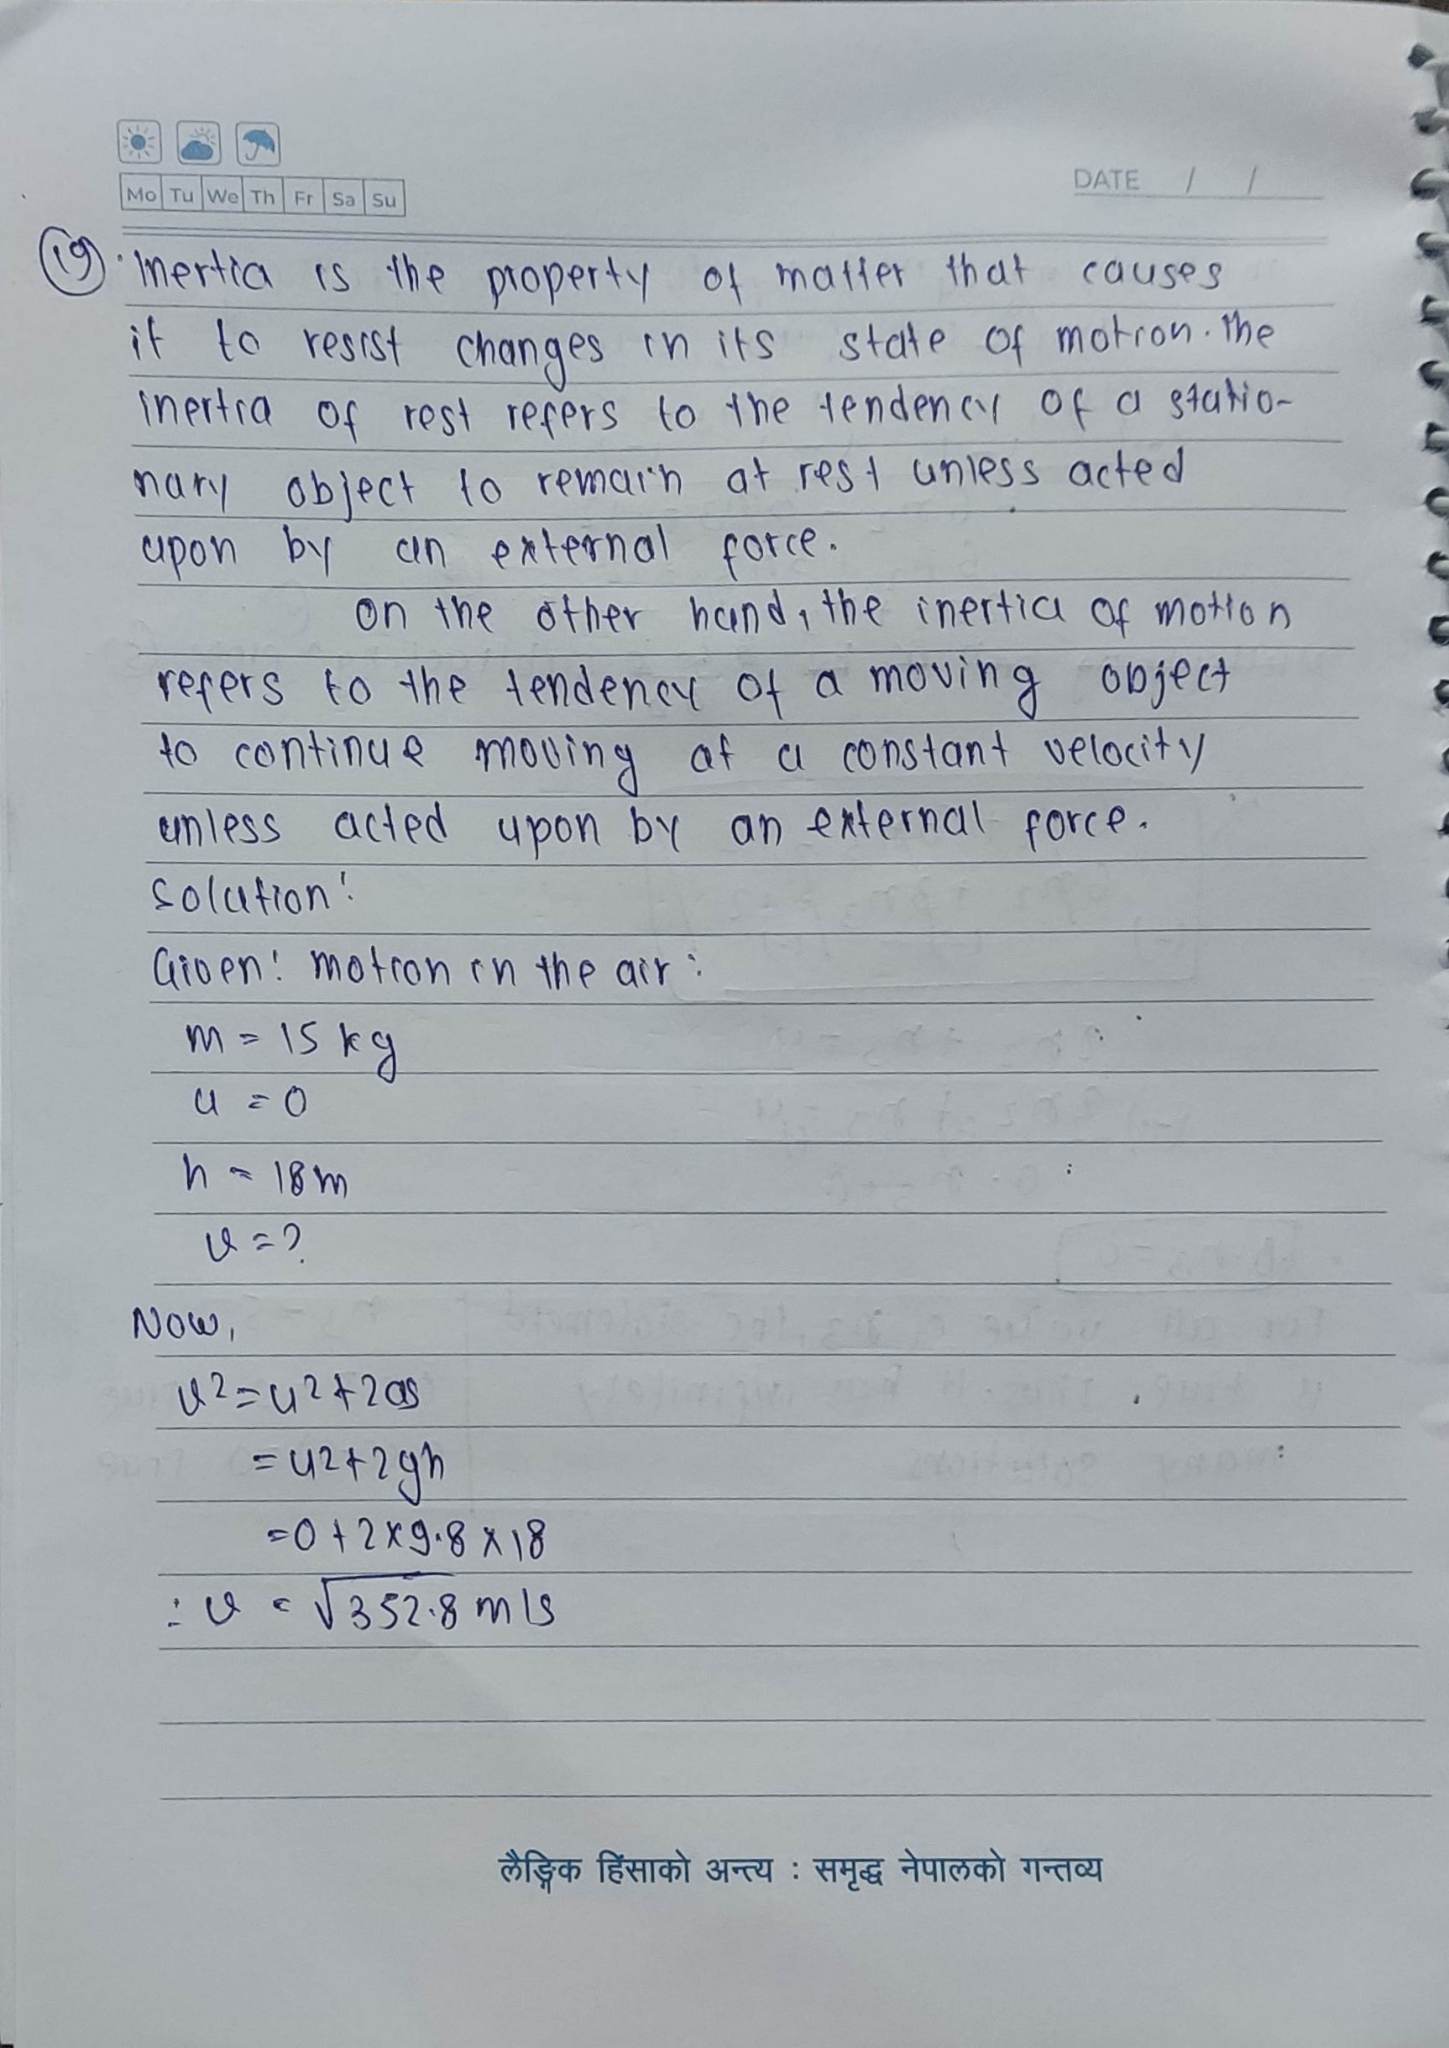 Mo Tu We Th Fr Sa Su
DATE / /
19 Inertia is the property of matter that causes
it to resist changes in its state of motion. The
inertia of rest refers to the tendency of a statio-
nary object to remain at rest unless acted
upon by an external force.
on the other hand, the inertia of motion
refers to the tendency of a moving object
to continue moving at a constant velocity
unless acted upon by an external force.
Solution:
Given: motion in the air:
m = 15 kg
u = 0
h = 18m
v = ?
Now,
v² = u² + 2as
= u² + 2gh
= 0 + 2 × 9.8 × 18
∴ v = √352.8 m/s
लैङ्गिक हिंसाको अन्त्य : समृद्ध नेपालको गन्तव्य